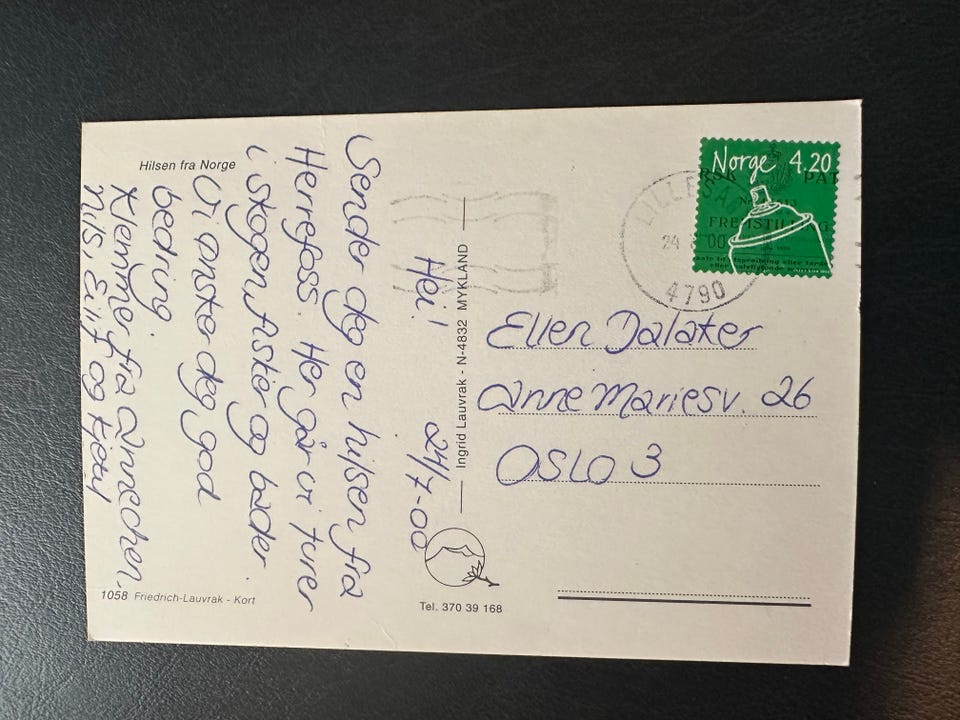 Hilsen fra Norge
Hei! 24/7-00
Sender deg en hilsen fra
Herrefoss. Her går vi turer
i skogen, fisker og bader.
Vi ønsker deg god
bedring.
Klemmer fra Annechen,
Nils, Eilif og
1058 Friedrich-Lauvrak - Kort
Ingrid Lauvrak - N-4832 MYKLAND
Tel. 370 39 168
Norge 4.20
FREMSTILLING
LILLESA
24 00
4790
Ellen Dalaker
Anne Mariesv. 26
OSLO 3